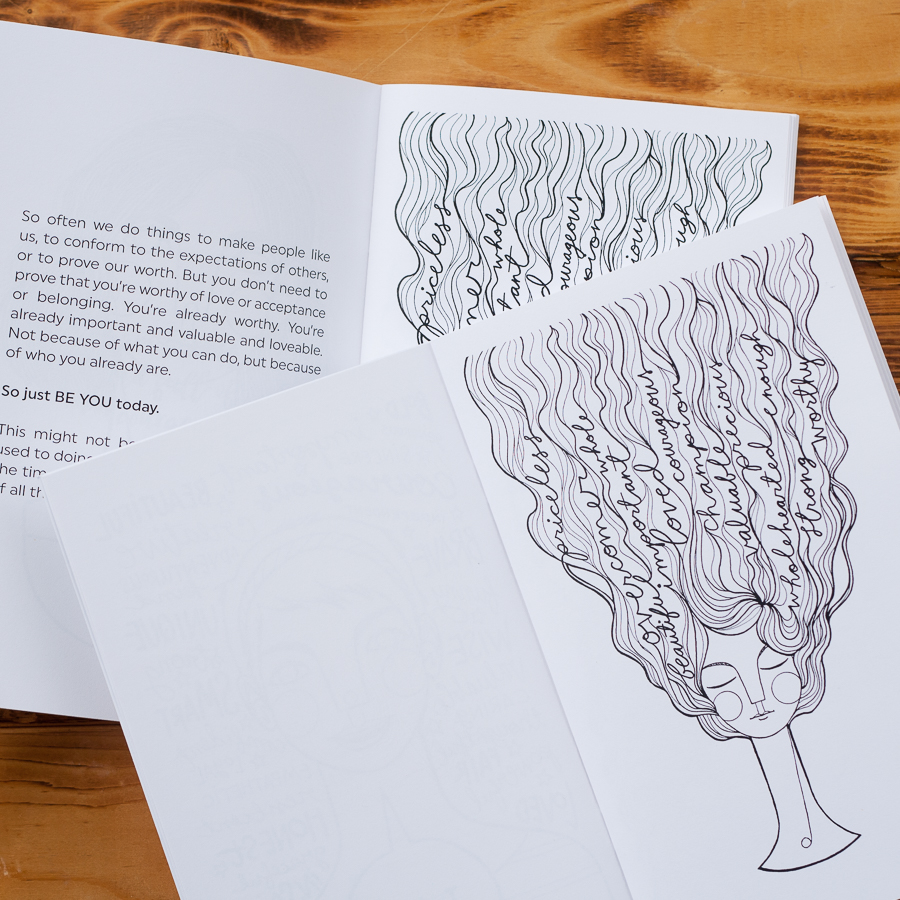 So often we do things to make people like
us, to conform to the expectations of others,
or to prove our worth. But you don't need to
prove that you're worthy of love or acceptance
or belonging. You're already worthy. You're
already important and valuable and loveable.
Not because of what you can do, but because
of who you already are.
So just BE YOU today.
This might not be
used to doing
the tim
of all th
priceless
whole
tant
courageous
pion
ious
ough
priceless
overcomer whole
beautiful important
loved courageous
champion
valuable precious
wholehearted enough
strong worthy